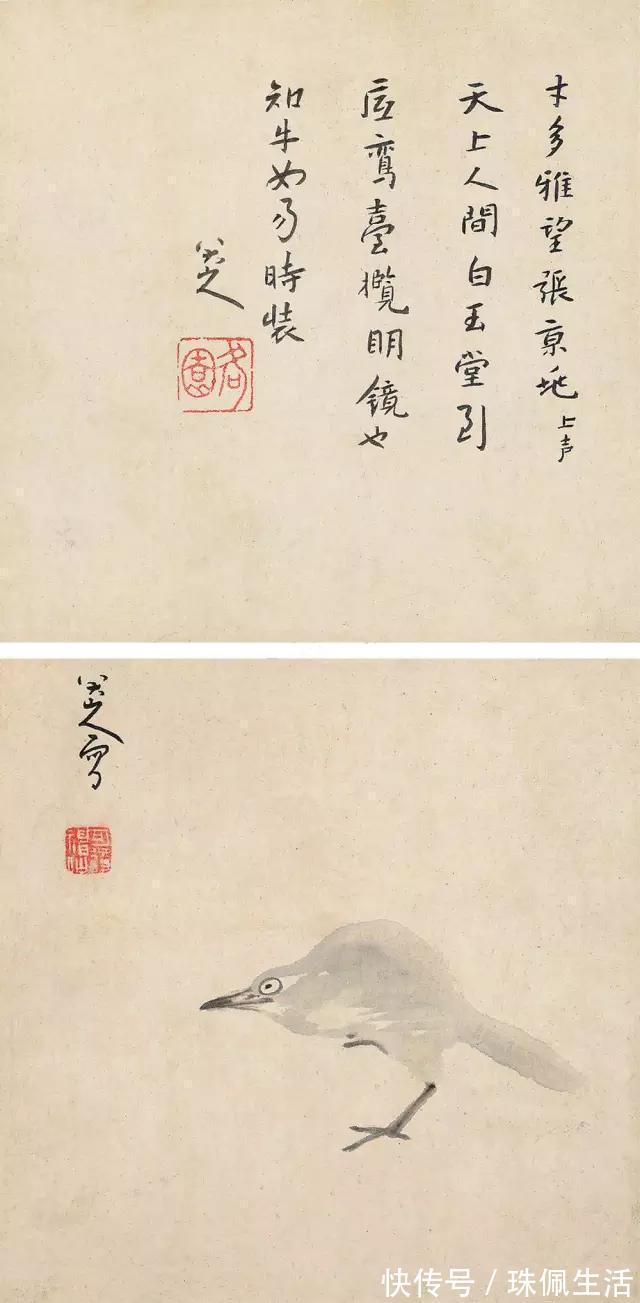 才多雅望張京兆 上声
天上人間白玉堂到
底鸞臺攬明鏡也
知牛女易時装
八大山人
八大山人寫
快传号 / 珠佩生活